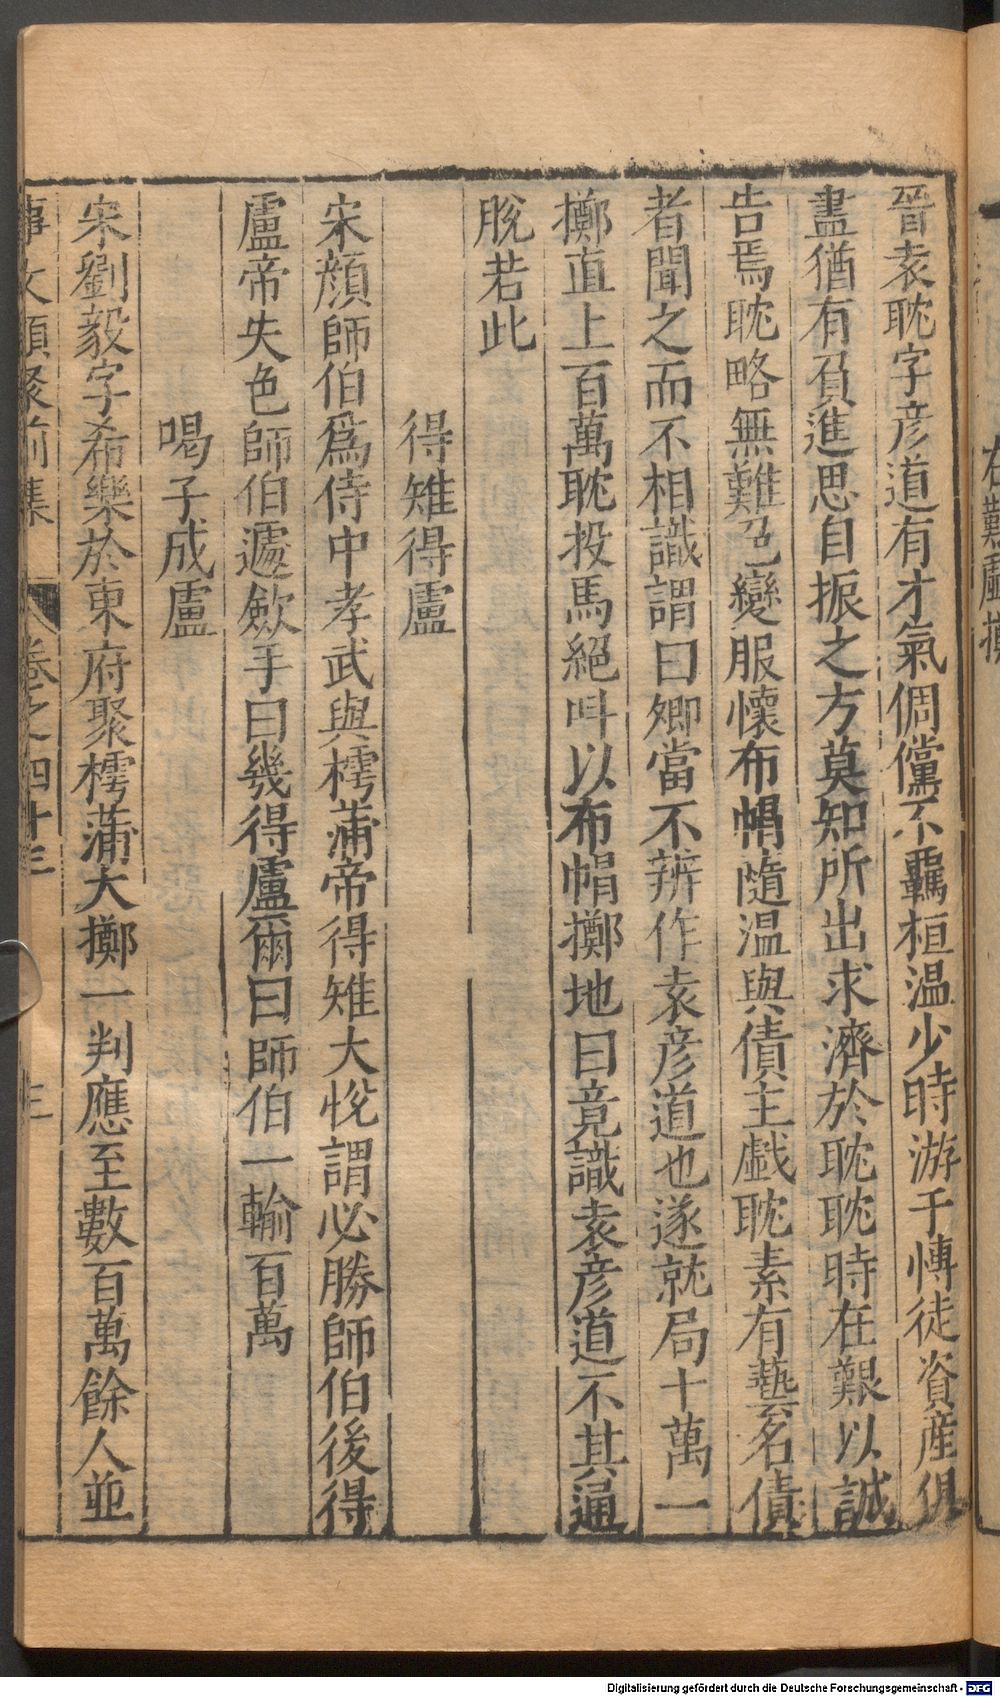 晉袁耽字彦道有才氣倜儻不羈桓温少時游于愽徒資産俱
盡猶有負進思自振之方莫知所出求濟於耽耽時在艱以誠
告焉耽略無難色變服懷布㡌隨温與債主戲耽素有藝名債
者聞之而不相識謂曰卿當不辨作袁彦道也遂就局十萬一
擲直上百萬耽投馬絕呌以布㡌擲地曰竟識袁彦道不其通
脫若此
得雉得盧
宋顏師伯爲侍中孝武與樗蒲帝得雉大悅謂必勝師伯後得
盧帝失色師伯遽斂手曰幾得盧爾曰師伯一輸百萬
喝子成盧
宋劉毅字希樂於東府聚樗蒲大擲一判應至數百萬餘人並
事文類聚前集 卷之四十三 三
Digitalisierung gefördert durch die Deutsche Forschungsgemeinschaft - DFG